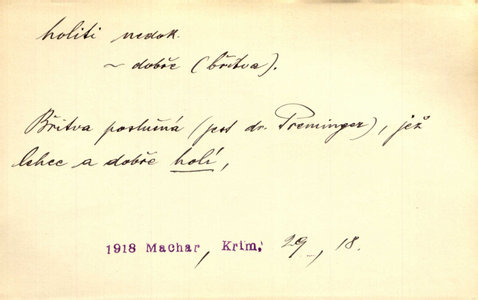 holiti nedok.
~ dobře (břitva).
Břitva poslušná (jest dr. Preminger), jež
lehce a dobře holí,
1918 Machar, Krim, 29, 18.